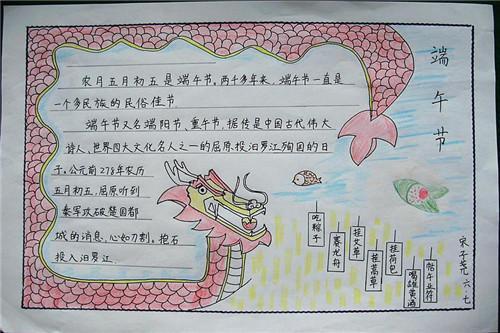 端午节
农月五月初五是端午节。两千多年来,端午节一直是
一个多民族的民俗佳节
端午节又名端阳节,重午节,据传是中国古代伟大
诗人,世界四大文化名人之一的屈原投汨罗江殉国的日
子。公元前278年农历
五月初五,屈原听到
秦军攻破楚国都
城的消息,心如刀割。抱石
投入汨罗江
吃粽子
赛龙舟
挂艾草
挂菖蒲
挂荷包
喝雄黄酒
帖午业符
六.七